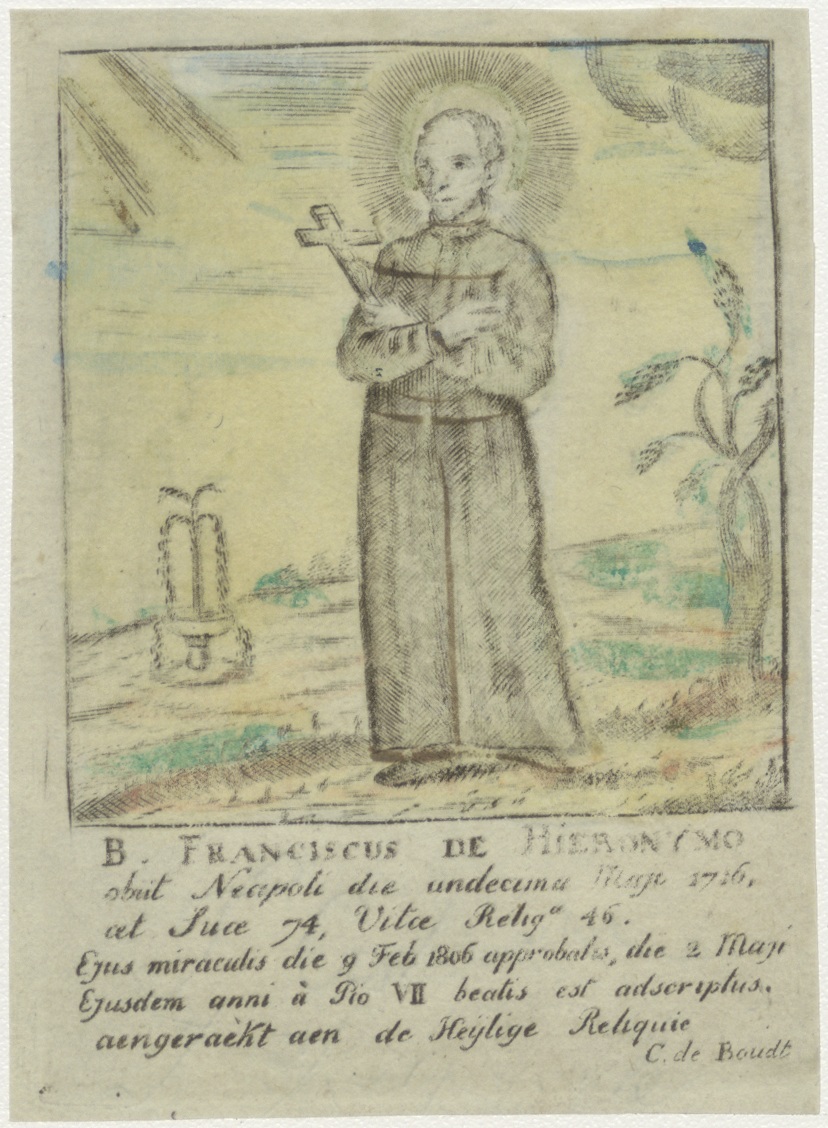 B. FRANCISCUS DE HIERONYMO
obiit Neapoli die undecima Maji 1716,
æt Suæ 74, Vitæ Relig.ᵃ 46.
Ejus miraculis die 9 Feb 1806 approbatis, die 2 Maji
Ejusdem anni à Pio VII beatis est adscriptus.
aengeraèkt aen de Heÿlige Reliquie
C. de Boudt